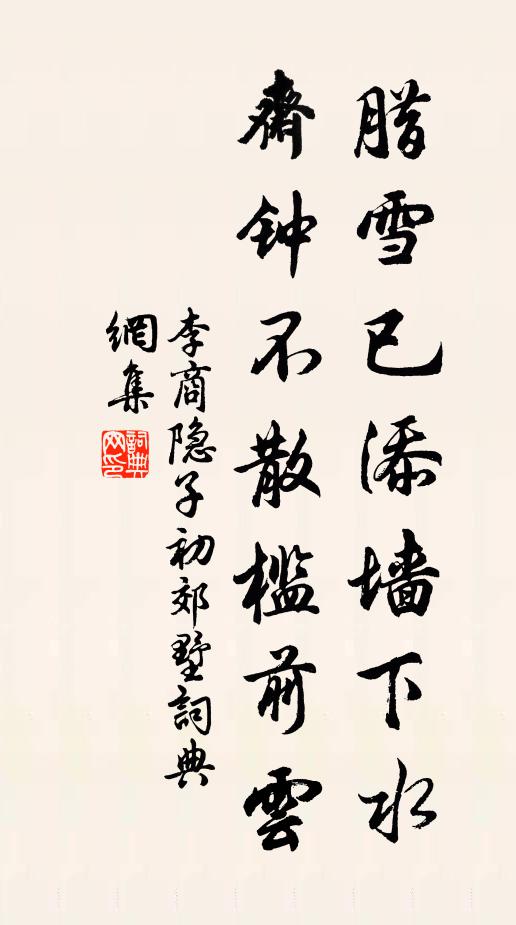 腊雪已添墙下水
齋钟不散槛前雲
李商隐子初郊墅詞典
網集
詞典
网印